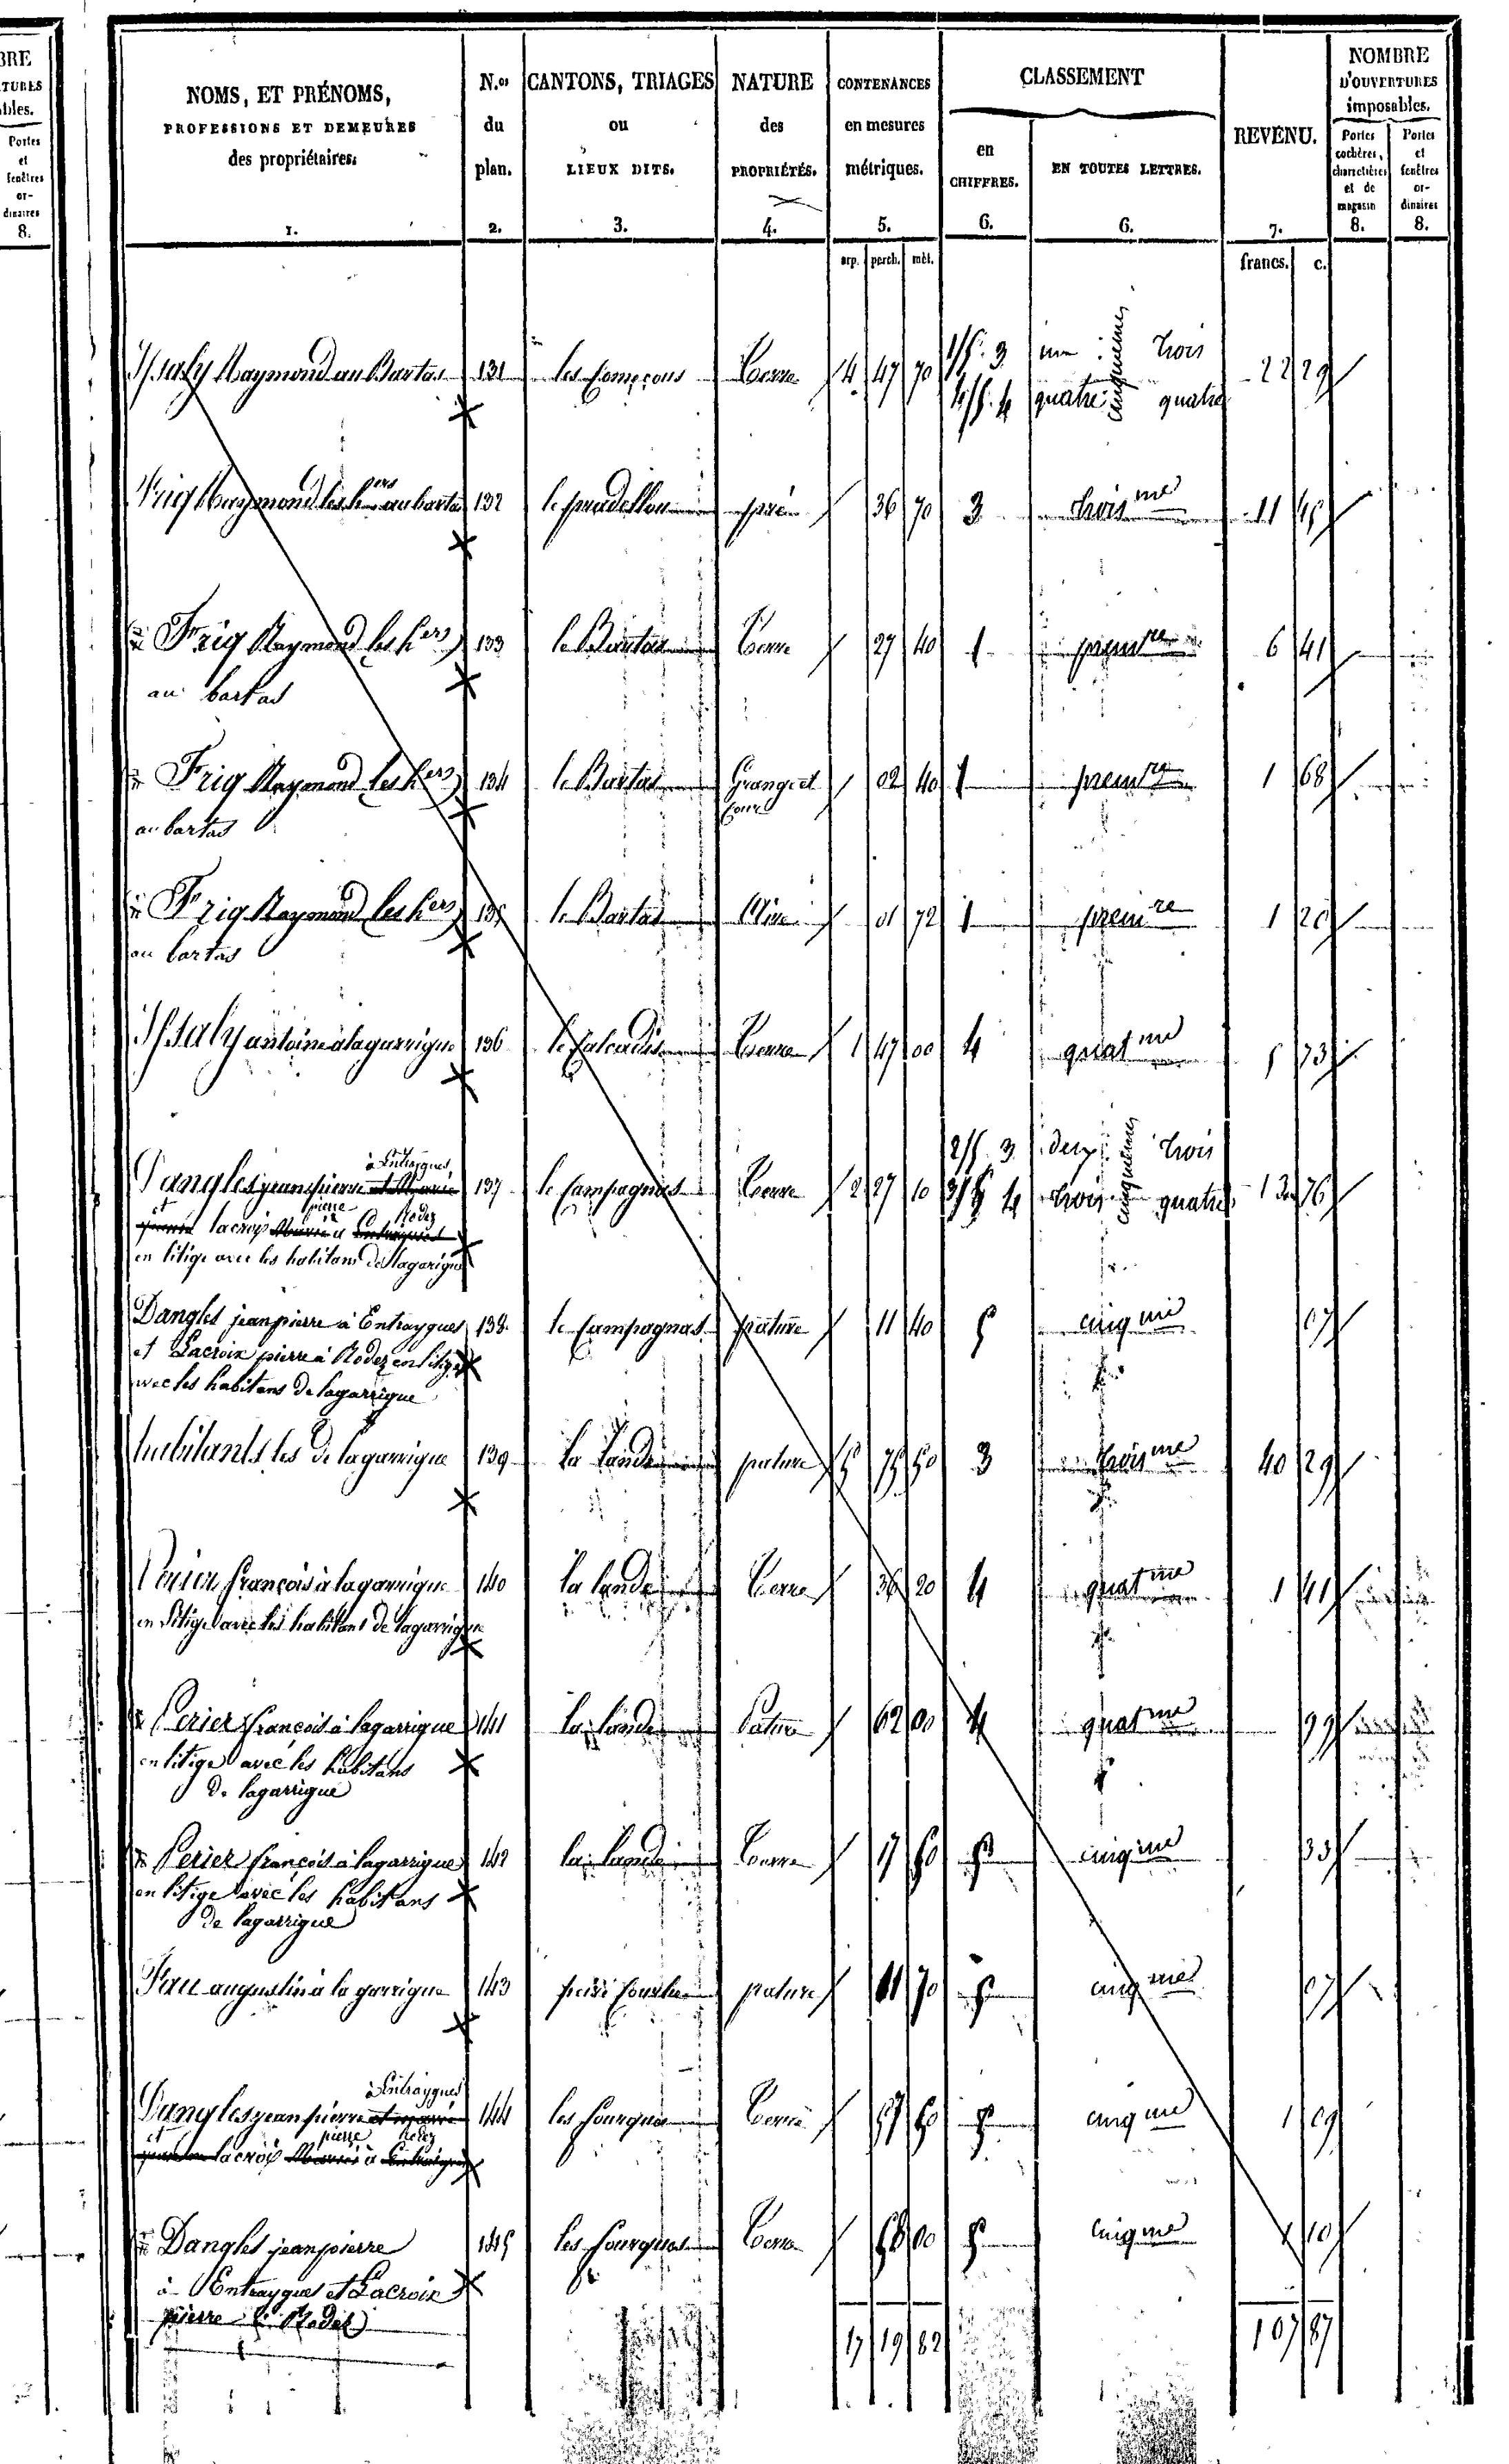 BRE
TURES
bles.
Portes
et
fenêtres
or-
dinaires
8.
NOMS, ET PRÉNOMS,
PROFESSIONS ET DEMEURES
des propriétaires.
1.
N.os
du
plan.
2.
CANTONS, TRIAGES
ou
LIEUX DITS.
3.
NATURE
des
PROPRIÉTÉS.
4.
CONTENANCES
en mesures
métriques.
5.
arp. perch. mèt.
CLASSEMENT
en
CHIFFRES.
6.
EN TOUTES LETTRES.
6.
REVENU.
7.
francs. c.
NOMBRE
D'OUVERTURES
imposables.
Portes
cochères,
charretières
et de
magasin
8.
Portes
et
fenêtres
or-
dinaires
8.
Issaly Raymond au Bartas 131 Terre 4 47 70 3 un cinquièmes trois 22 29
4 quatre quatre
Frig Raymond les hers au bartas 132 le pradellou pré 36 70 3 trois me 11
Frig Raymond les hers 133 le Bartas Terre 27 40 1 prem re 6 41
au bartas
Frig Raymond les hers 134 le Bartas Grange et 02 40 1 prem re 1 68
au bartas cour
Frig Raymond les hers 135 le Bartas Aire 01 72 1 prem re 1 20
au bartas
Issaly antoine à lagarrigue 136 Terre 1 47 00 4 quat me 5 73
à Entraygues
Dangles jean pierre et Marie 137 le Campagnas Terre 2 27 10 2/5 3 deux cinquièmes trois 13 76
et pierre Rodez
lacroix à 3/5 4 trois quatre
en litige avec les habitans de lagarrigue
Dangles jean pierre à Entraygues 138 le Campagnas pâture 11 40 5 cinq me 07
et Lacroix pierre à Rodez en litige
avec les habitans de lagarrigue
habitants les de lagarrigue 139 la lande pature 5 75 50 3 trois me 40 29
Périer françois à lagarrigue 140 la lande Terre 36 20 4 quat me 1 41
en litige avec les habitans de lagarrigue
Perier françois à lagarrigue 141 la lande Pature 62 00 4 quat me 99
en litige avec les habitans
de lagarrigue
Perier françois à lagarrigue 142 la lande Terre 17 50 5 cinq me 33
en litige avec les habitans
de lagarrigue
Fau augustin à la garrigue 143 pature 11 70 5 cinq me 07
à Entraygues
Dangles jean pierre et marie 144 les fourques Terre 57 50 5 cinq me 1 09
et pierre Rodez
lacroix à
Dangles jean pierre 145 les fourques Terre 58 00 5 cinq me 1 10
à Entraygues et Lacroix
pierre à Rodez
17 19 82 107 87